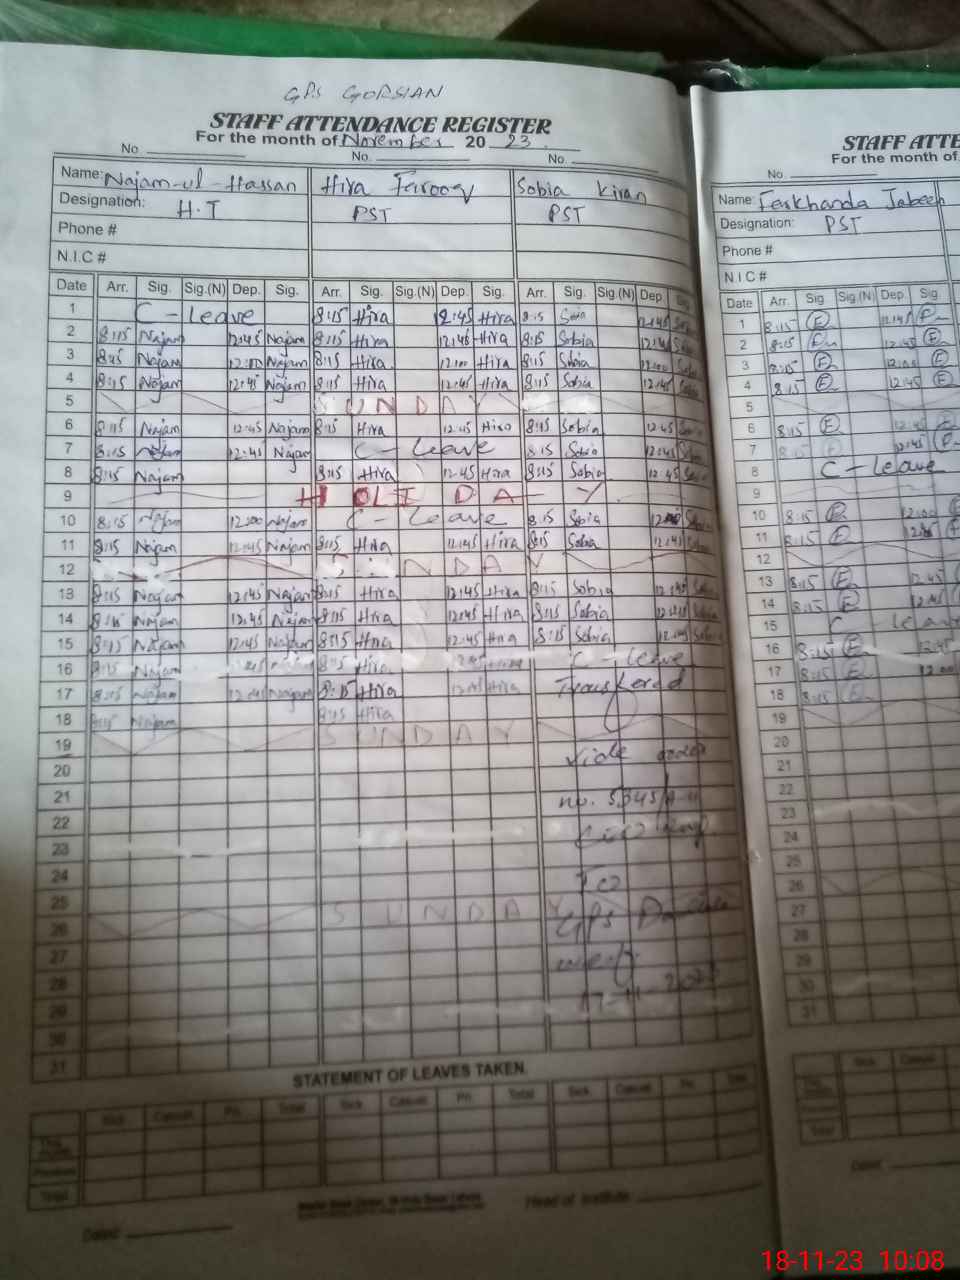 GPS GORSIAN
STAFF ATTENDANCE REGISTER
For the month of November 20 23.
No. No. No.
Name: Najam-ul-Hassan Hira Farooq Sobia Kiran
Designation: H.T PST PST
Phone #
N.I.C #
Date Arr. Sig. Sig.(N) Dep. Sig. Arr. Sig. Sig.(N) Dep. Sig. Arr. Sig. Sig.(N) Dep.
1 C - Leave 8:15 Hira 12:45 Hira 8:15 Sobia 12:45
2 8:15 Najam 12:45 Najam 8:15 Hira 12:45 Hira 8:15 Sobia
3 Najam 12:00 Najam 8:15 Hira 12:00 Hira 8:15 Sobia 12:00
4 8:15 Najam 12:45 Najam 8:15 Hira 12:45 Hira 8:15 Sobia 12:45
5 SUNDAY
6 8:15 Najam 12:45 Najam 8:15 Hira 12:45 Hira 8:15 Sobia 12:45
7 8:15 Najam 12:45 Najam C - Leave 8:15 Sobia 12:45
8 8:15 Najam 8:15 Hira 12:45 Hira 8:15 Sobia 12:45
9 HOLIDAY
10 8:15 Najam 12:00 Najam C - Leave 8:15 Sobia
11 8:15 Najam 12:45 Najam 8:15 Hira 12:45 Hira 8:15 Sobia 12:45
12 SUNDAY
13 8:15 Najam 12:45 Najam 8:15 Hira 12:45 Hira 8:15 Sobia 12:45
14 8:15 Najam 12:45 Najam 8:15 Hira 12:45 Hira 8:15 Sobia
15 8:15 Najam 12:45 Najam 8:15 Hira 12:45 Hira 8:15 Sobia 12:45
16 8:15 Najam 12:45 Najam 8:15 Hira C - Leave
17 8:15 Najam 12:45 Najam 8:15 Hira Hira Transfered
18 8:15 Najam 8:15 Hira
19 SUNDAY
20 vide order
21
22 no. 5345/A-11
23
24 To
25 SUNDAY
26 GPS
27
28 w.e.f.
29 17-11-2023
30
31
STATEMENT OF LEAVES TAKEN
Sick Casual Pri. Total Sick Casual Pri. Total Sick Casual Pri.
Previous
Total
Head of Institute
Dated
STAFF ATTE
For the month of
No.
Name: Farkhanda Jabeen
Designation: PST
Phone #
N.I.C #
Date Arr. Sig Sig.(N) Dep. Sig.
1 8:15 12:45
2 8:15 12:45
3 8:15 12:00
4 8:15 12:45
5
6 8:15 12:45
7 8:15 12:45
8 C - Leave
9
10 8:15 12:00
11 8:15
12
13 8:15 12:45
14 8:15 12:45
15 C - Leave
16 8:15 12:45
17 8:15 12:00
18 8:15
19
20
21
22
23
24
25
26
27
28
29
30
31
Sick Casual
Total
Dated
18-11-23 10:08